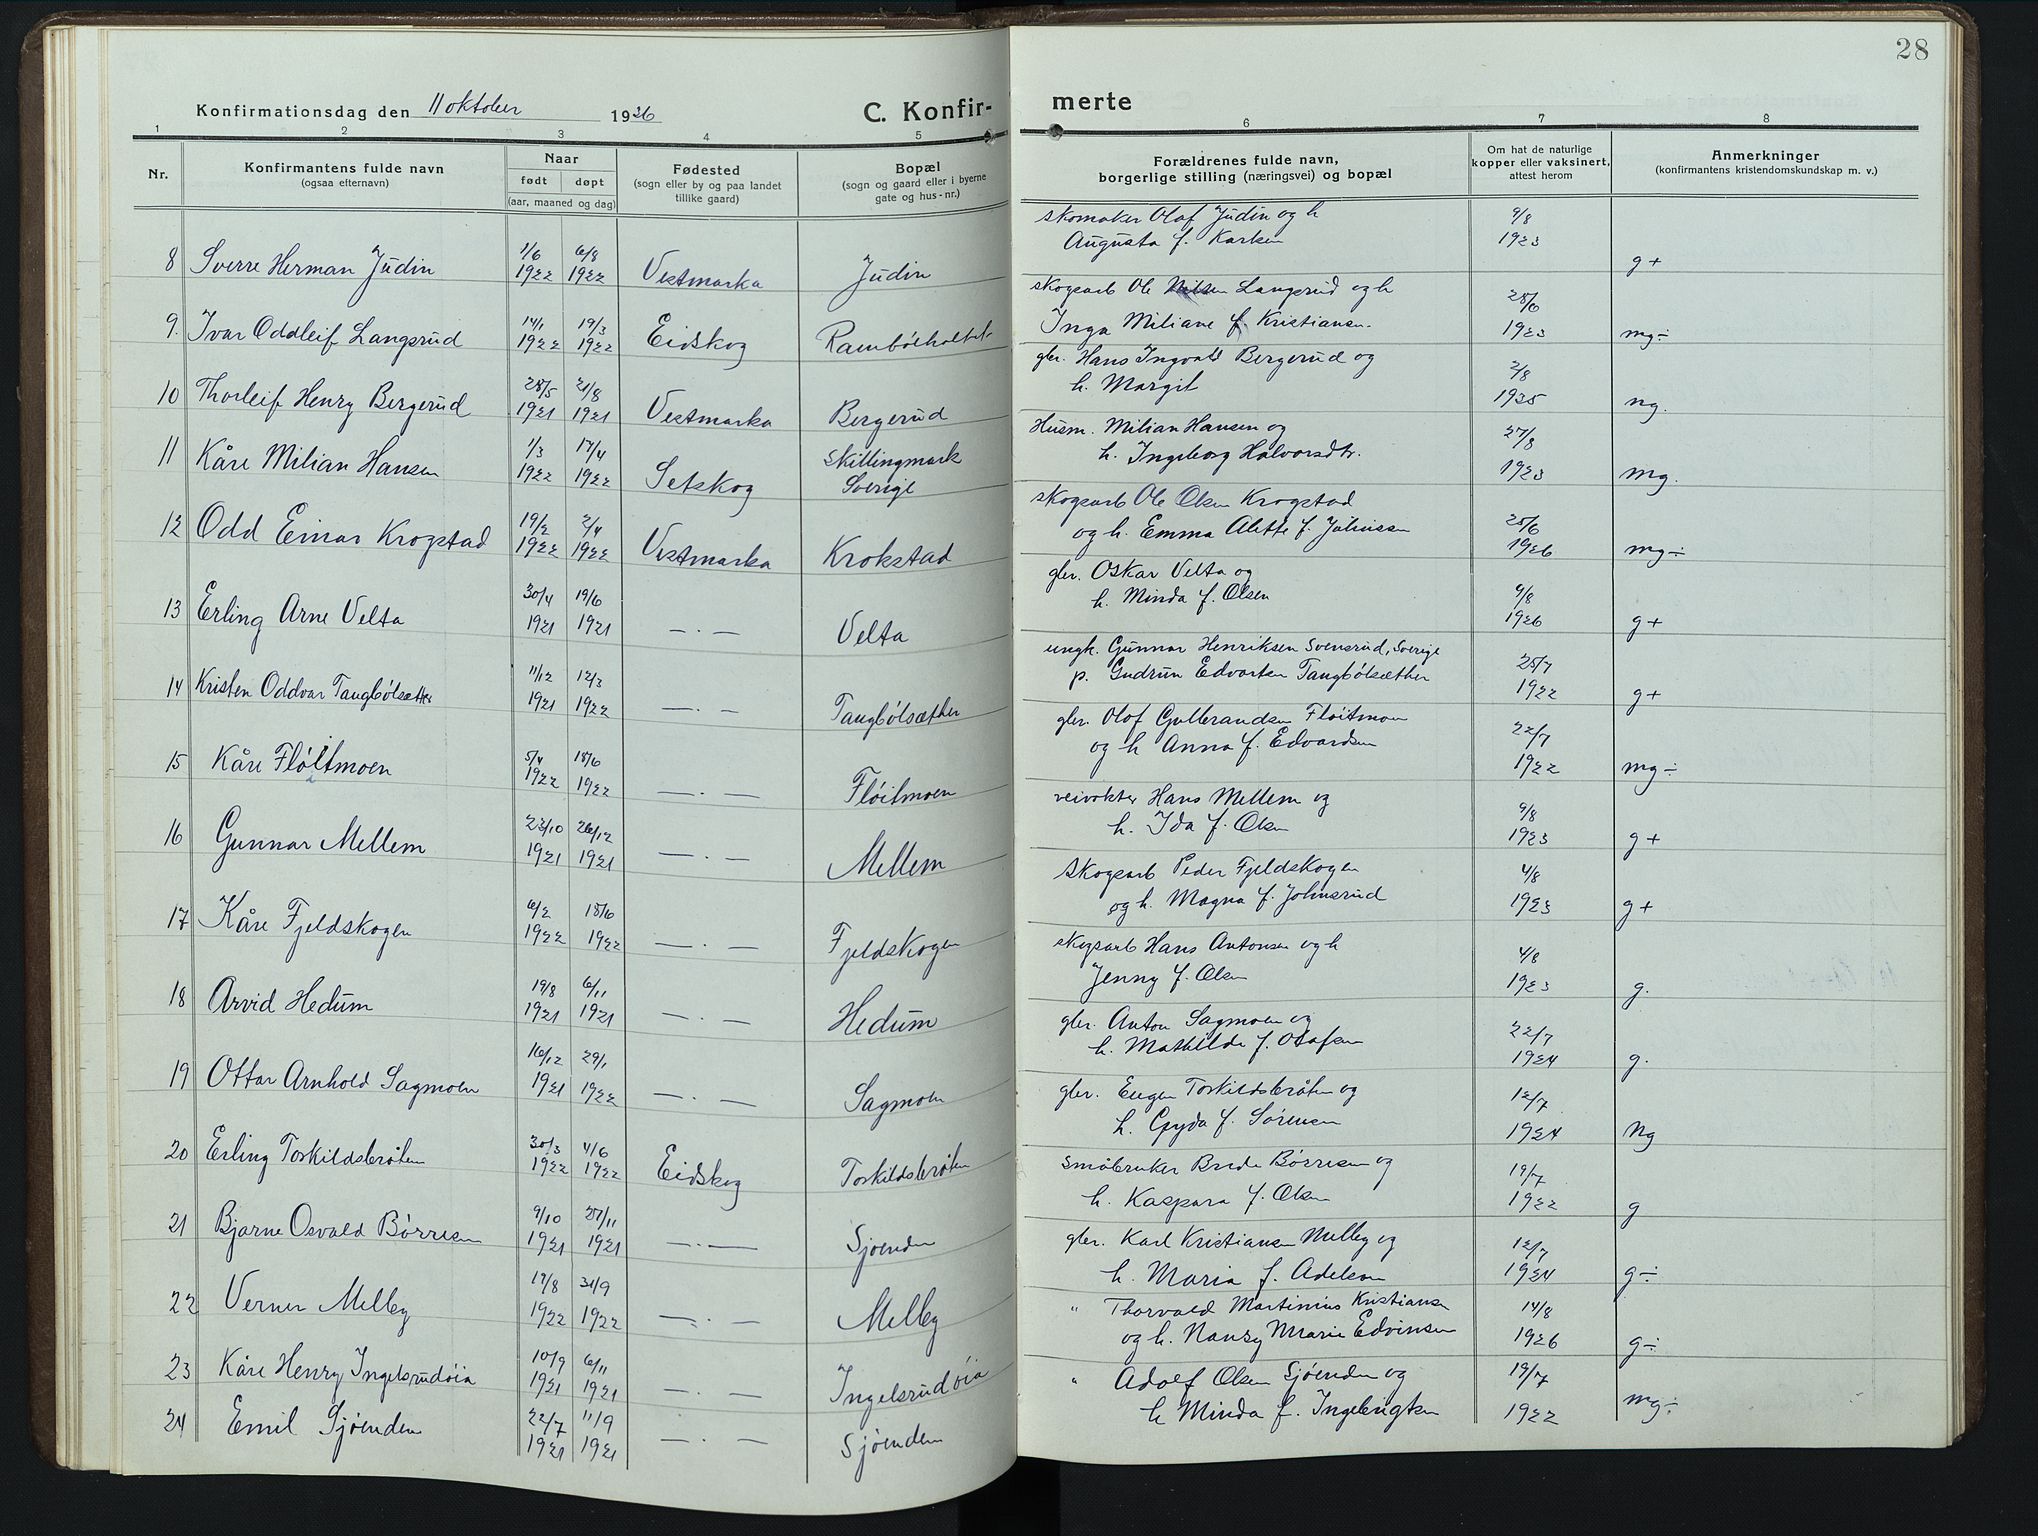 28
Konfirmationsdag den 11 oktober 1936
C. Konfir-
merte
1 2 3 4 5 6 7 8
Nr.
Konfirmantens fulde navn
(ogsaa efternavn)
Naar
født døpt
(aar, maaned og dag)
Fødested
(sogn eller by og paa landet
tillike gaard)
Bopæl
(sogn og gaard eller i byerne
gate og hus-nr.)
Forældrenes fulde navn,
borgerlige stilling (næringsvei) og bopæl
Om hat de naturlige
kopper eller vaksinert,
attest herom
Anmerkninger
(konfirmantens kristendomskundskap m. v.)
skomaker Olaf Judin og h 9/8
Augusta f. Karlsen 1923
8 Sverre Herman Judin 1/6 1922 6/8 1922 Vestmarka Judin g+
skogsarb Ole Langsrud og h 28/6
9. Ivar Oddleif Langsrud 14/1 1922 19/3 1922 Eidskog Inga Miliane f. Kristiansen. 1923 mg÷
gbr. Hans Ingvald Bergerud og 2/8
10 Thorleif Henry Bergerud 28/5 1921 21/8 1921 Vestmarka Bergerud h. Margit 1935 ng.
Husm. Milian Hansen og 27/8
11 Kåre Milian Hansen 1/3 1922 17/4 1922 Setskog Skillingmark Sverige h. Ingeborg Halvorsdtr. 1923 mg.
skogsarb Ole Olsen Krogstad 28/6
12 Odd Einar Krogstad 19/2 1922 2/4 1922 Vestmarka Krokstad og h. Emma Alette f. Juliussen 1926 mg÷
gbr. Oskar Velta og 9/8
13 Erling Arne Velta 30/4 1921 19/6 1921 — . — Velta h. Minda f. Olsen 1926 g+
ungk. Gunnar Henriksen Svensrud, Sverige 25/7
14 Kristen Oddvar Tangbølsætter 11/12 1921 12/3 1922 — . — Tangbølsæther p. Gudrun Edvartsen Tangbølsæther 1922 g+
gbr. Olof Gulbrandsen Fløitmoen 22/7
15 Kåre Fløitmoen 5/4 1922 18/6 1922 — . — Fløitmoen og h Anna f. Edvardsen 1922 mg÷
veivokter Hans Mellem og 9/8
16 Gunnar Mellem 23/10 1921 26/12 1921 — . — Mellem h. Ida f. Olsen 1923 g+
Skogsarb Peder Fjeldskogen 4/8
17 Kåre Fjeldskogen 6/2 1922 18/6 1922 — . — Fjeldskogen og h. Magna f. Johnsrud 1923 g+
skogsarb Hans Antonsen og h 4/8
18 Arvid Hedum 19/8 1921 6/11 1921 — . — Hedum Jenny f. Olsen 1923 g.
gbr. Anton Sagmoen og 22/7
19 Ottar Arnhold Sagmoen 16/12 1921 29/1 1922 — . — Sagmoen h. Mathilde f. Olafsen 1924 g.
gbr. Eugen Torkildsbråten og 12/7
20 Erling Torkildsbråten 30/3 1922 4/6 1922 Eidskog Torkildsbråten h. Gyda f. Sørensen 1924 Ng
småbruker Brede Børresen og 19/7
21 Bjarne Osvald Børresen 9/10 1921 27/11 1921 — . — Sjøenden h. Kaspara f. Olsen 1922 g
gbr. Karl Kristiansen Melby og 12/7
22 Verner Melby 19/8 1922 31/9 1922 — . — Melby h. Maria f. Adelson 1924 g÷
" Thorvald Martinius Kristiansen 14/8
23 Kåre Henry Ingelsrudøia 10/9 1921 6/11 1921 — . — Ingelsrudøia og h. Nanzy Marie Edvinsen 1926 g÷
" Adolf Olsen Sjøenden og 19/7
24 Emil Sjøenden 22/7 1921 11/9 1921 — . — Sjøenden h Minda f. Ingebrigtsen 1922 mg÷
Rambølholtet